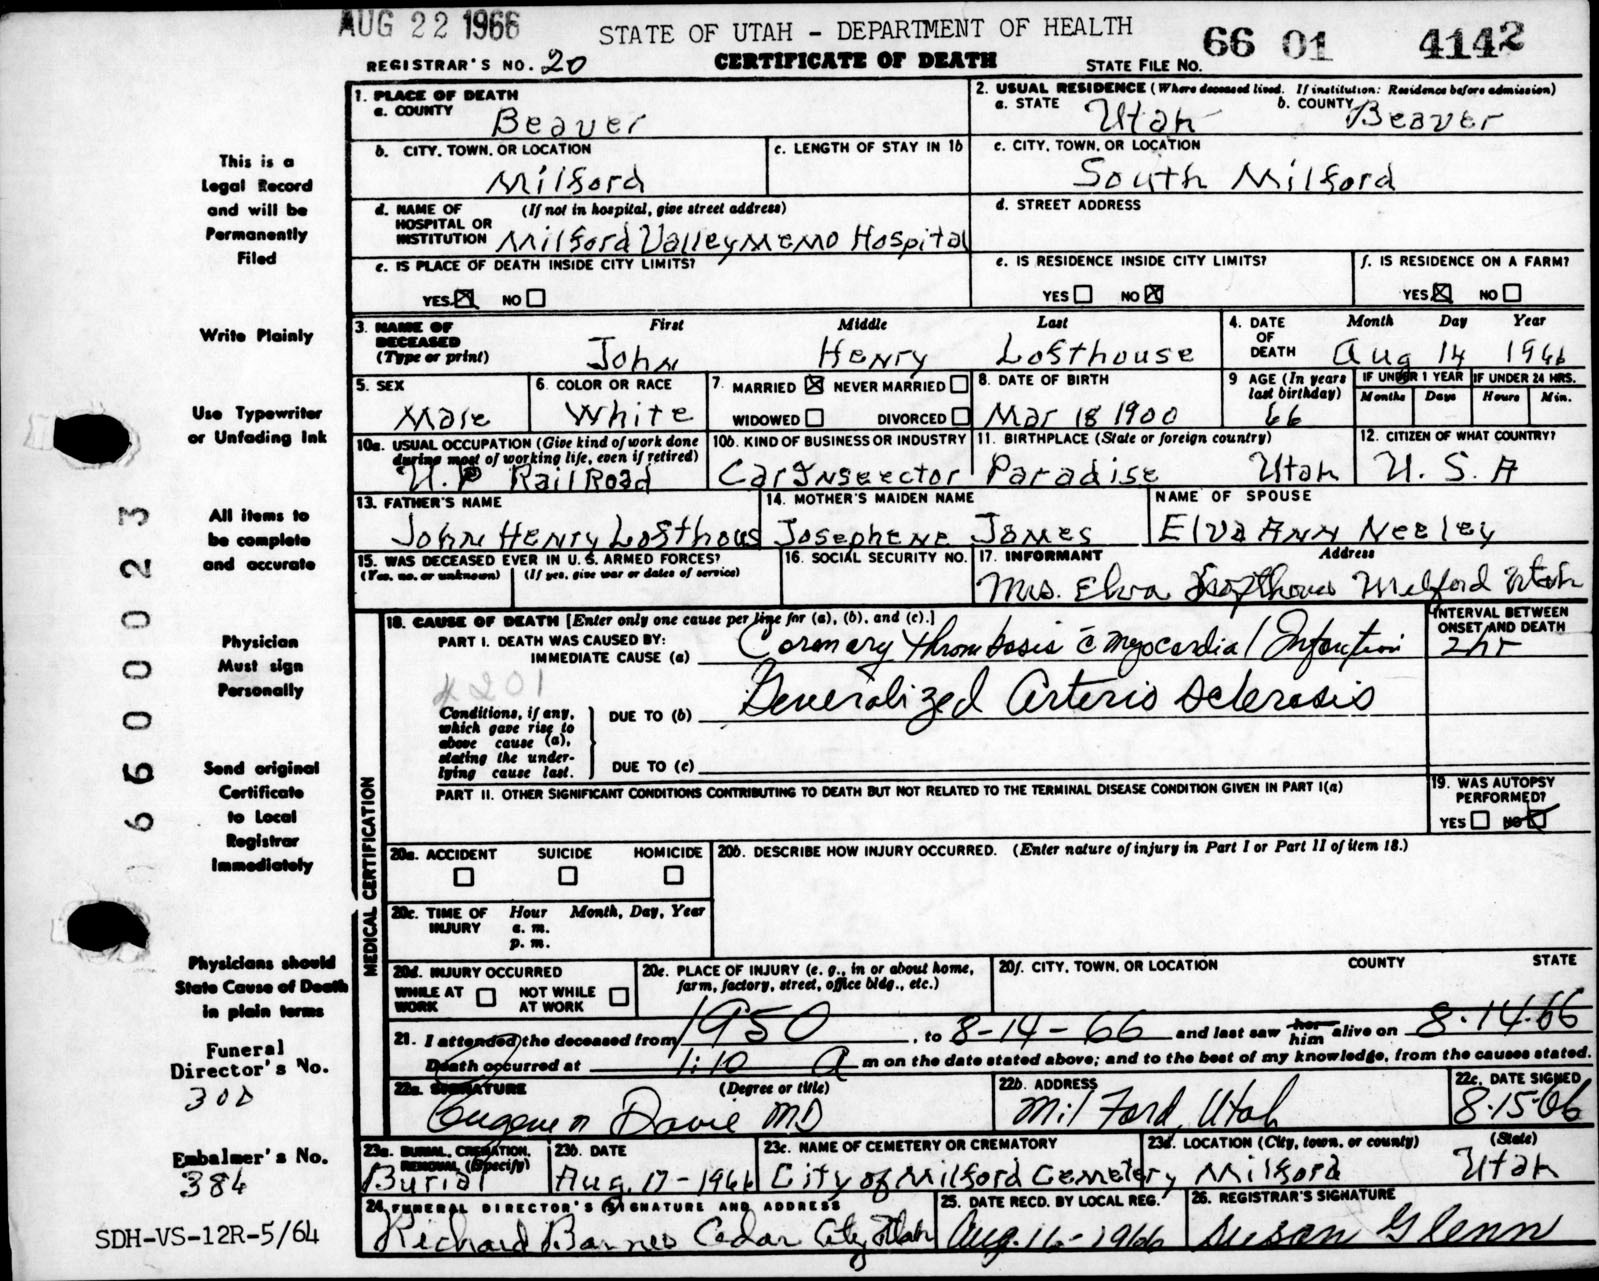 AUG 22 1966
STATE OF UTAH - DEPARTMENT OF HEALTH
66 01 4142
REGISTRAR'S NO. 20
CERTIFICATE OF DEATH
STATE FILE NO.
1. PLACE OF DEATH
a. COUNTY
Beaver
2. USUAL RESIDENCE (Where deceased lived. If institution: Residence before admission)
a. STATE Utah b. COUNTY Beaver
b. CITY, TOWN, OR LOCATION
Milford
c. LENGTH OF STAY IN 1b
c. CITY, TOWN, OR LOCATION
South Milford
d. NAME OF (If not in hospital, give street address)
HOSPITAL OR
INSTITUTION Milford Valley Memo Hospital
d. STREET ADDRESS
e. IS PLACE OF DEATH INSIDE CITY LIMITS?
YES NO
e. IS RESIDENCE INSIDE CITY LIMITS?
YES NO
f. IS RESIDENCE ON A FARM?
YES NO
3. NAME OF DECEASED (Type or print)
First Middle Last
John Henry Lofthouse
4. DATE OF DEATH
Month Day Year
Aug 14 1966
5. SEX
Male
6. COLOR OR RACE
White
7. MARRIED NEVER MARRIED
WIDOWED DIVORCED
8. DATE OF BIRTH
Mar 18 1900
9 AGE (In years last birthday)
66
IF UNDER 1 YEAR
Months Days
IF UNDER 24 HRS.
Hours Min.
10a. USUAL OCCUPATION (Give kind of work done
during most of working life, even if retired)
U.P RailRoad
10b. KIND OF BUSINESS OR INDUSTRY
Car Inspector
11. BIRTHPLACE (State or foreign country)
Paradise Utah
12. CITIZEN OF WHAT COUNTRY?
U. S. A
13. FATHER'S NAME
John Henry Lofthous
14. MOTHER'S MAIDEN NAME
Josephene James
NAME OF SPOUSE
Elva Ann Neeley
15. WAS DECEASED EVER IN U. S. ARMED FORCES?
(Yes, no, or unknown) (If yes, give war or dates of service)
16. SOCIAL SECURITY NO.
17. INFORMANT Address
Mrs. Elva Lofthous Milford Utah
MEDICAL CERTIFICATION
18. CAUSE OF DEATH [Enter only one cause per line for (a), (b), and (c).]
PART I. DEATH WAS CAUSED BY:
IMMEDIATE CAUSE (a) Coronary Thrombosis c̄ myocardial Infarction
INTERVAL BETWEEN
ONSET AND DEATH
2hr
4201
Conditions, if any,
which gave rise to
above cause (a),
stating the under-
lying cause last.
DUE TO (b) Generalized Arterio sclerosis
DUE TO (c)
PART II. OTHER SIGNIFICANT CONDITIONS CONTRIBUTING TO DEATH BUT NOT RELATED TO THE TERMINAL DISEASE CONDITION GIVEN IN PART I(a)
19. WAS AUTOPSY
PERFORMED?
YES NO
20a. ACCIDENT SUICIDE HOMICIDE
20b. DESCRIBE HOW INJURY OCCURRED. (Enter nature of injury in Part I or Part II of item 18.)
20c. TIME OF INJURY Hour Month, Day, Year
a. m.
p. m.
20d. INJURY OCCURRED
WHILE AT WORK NOT WHILE AT WORK
20e. PLACE OF INJURY (e. g., in or about home,
farm, factory, street, office bldg., etc.)
20f. CITY, TOWN, OR LOCATION COUNTY STATE
21. I attended the deceased from 1950, to 8-14-66 and last saw her him alive on 8-14-66
Death occurred at 1:10 A m on the date stated above; and to the best of my knowledge, from the causes stated.
22a. SIGNATURE (Degree or title)
Eugene n Davie MD
22b. ADDRESS
Milford, Utah
22c. DATE SIGNED
8-15-66
23a. BURIAL, CREMATION,
REMOVAL (Specify)
Burial
23b. DATE
Aug. 17-1966
23c. NAME OF CEMETERY OR CREMATORY
City of Milford Cemetery
23d. LOCATION (City, town, or county) (State)
Milford Utah
24. FUNERAL DIRECTOR'S SIGNATURE AND ADDRESS
Richard Barnes Cedar City Utah
25. DATE RECD. BY LOCAL REG.
Aug. 16-1966
26. REGISTRAR'S SIGNATURE
Susan Glenn
This is a
Legal Record
and will be
Permanently
Filed
Write Plainly
Use Typewriter
or Unfading Ink
All items to
be complete
and accurate
Physician
Must sign
Personally
Send original
Certificate
to Local
Registrar
Immediately
Physicians should
State Cause of Death
in plain terms
Funeral
Director's No.
300
Embalmer's No.
384
SDH-VS-12R-5/64
6600023